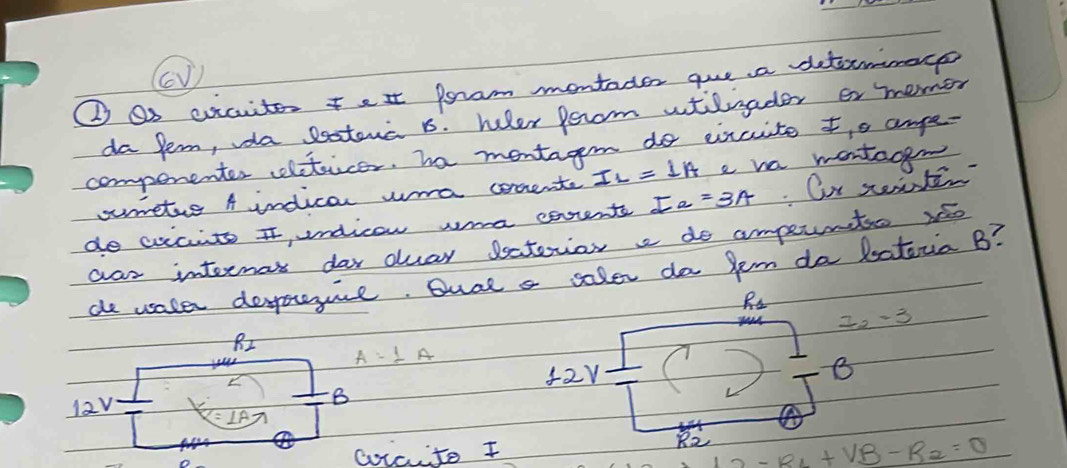 6V
① Os circuitos I e II foram montados que a determinação
da fem, da bateria B. neles foram utilizados os mesmos
componentes elétricos. na montagem do circuito I, o ampe-
rímetro A indicou uma corrente I1 = 1A e na montagem
do circuito II, indicou uma corrente I2 = 3A. As resistên-
cias internas das duas baterias e do amperímetro são
de valor desprezível. Qual o valor da fem da bateria B?
R1
A = 1 A
12V
B
= 1A
A
Circuito I
R1
I2 = 3
12V
B
A
R2
- R1 + VB - R2 = 0